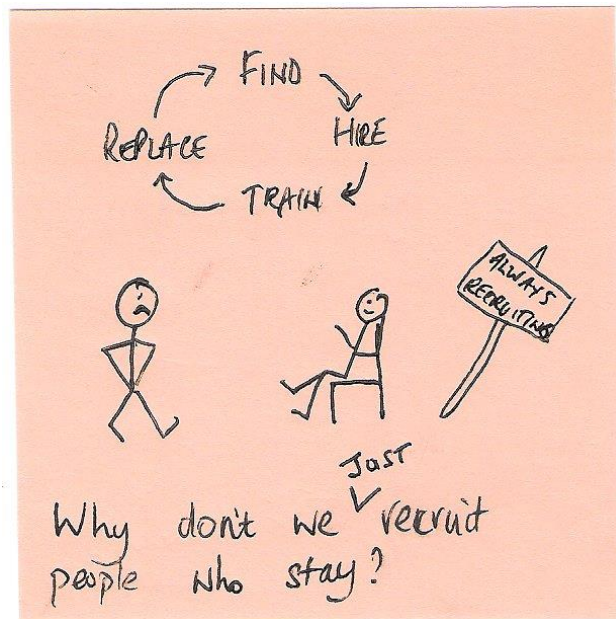 FIND
REPLACE HIRE
TRAIN
ALWAYS
RECRUITING
Why don't we just recruit
people who stay?